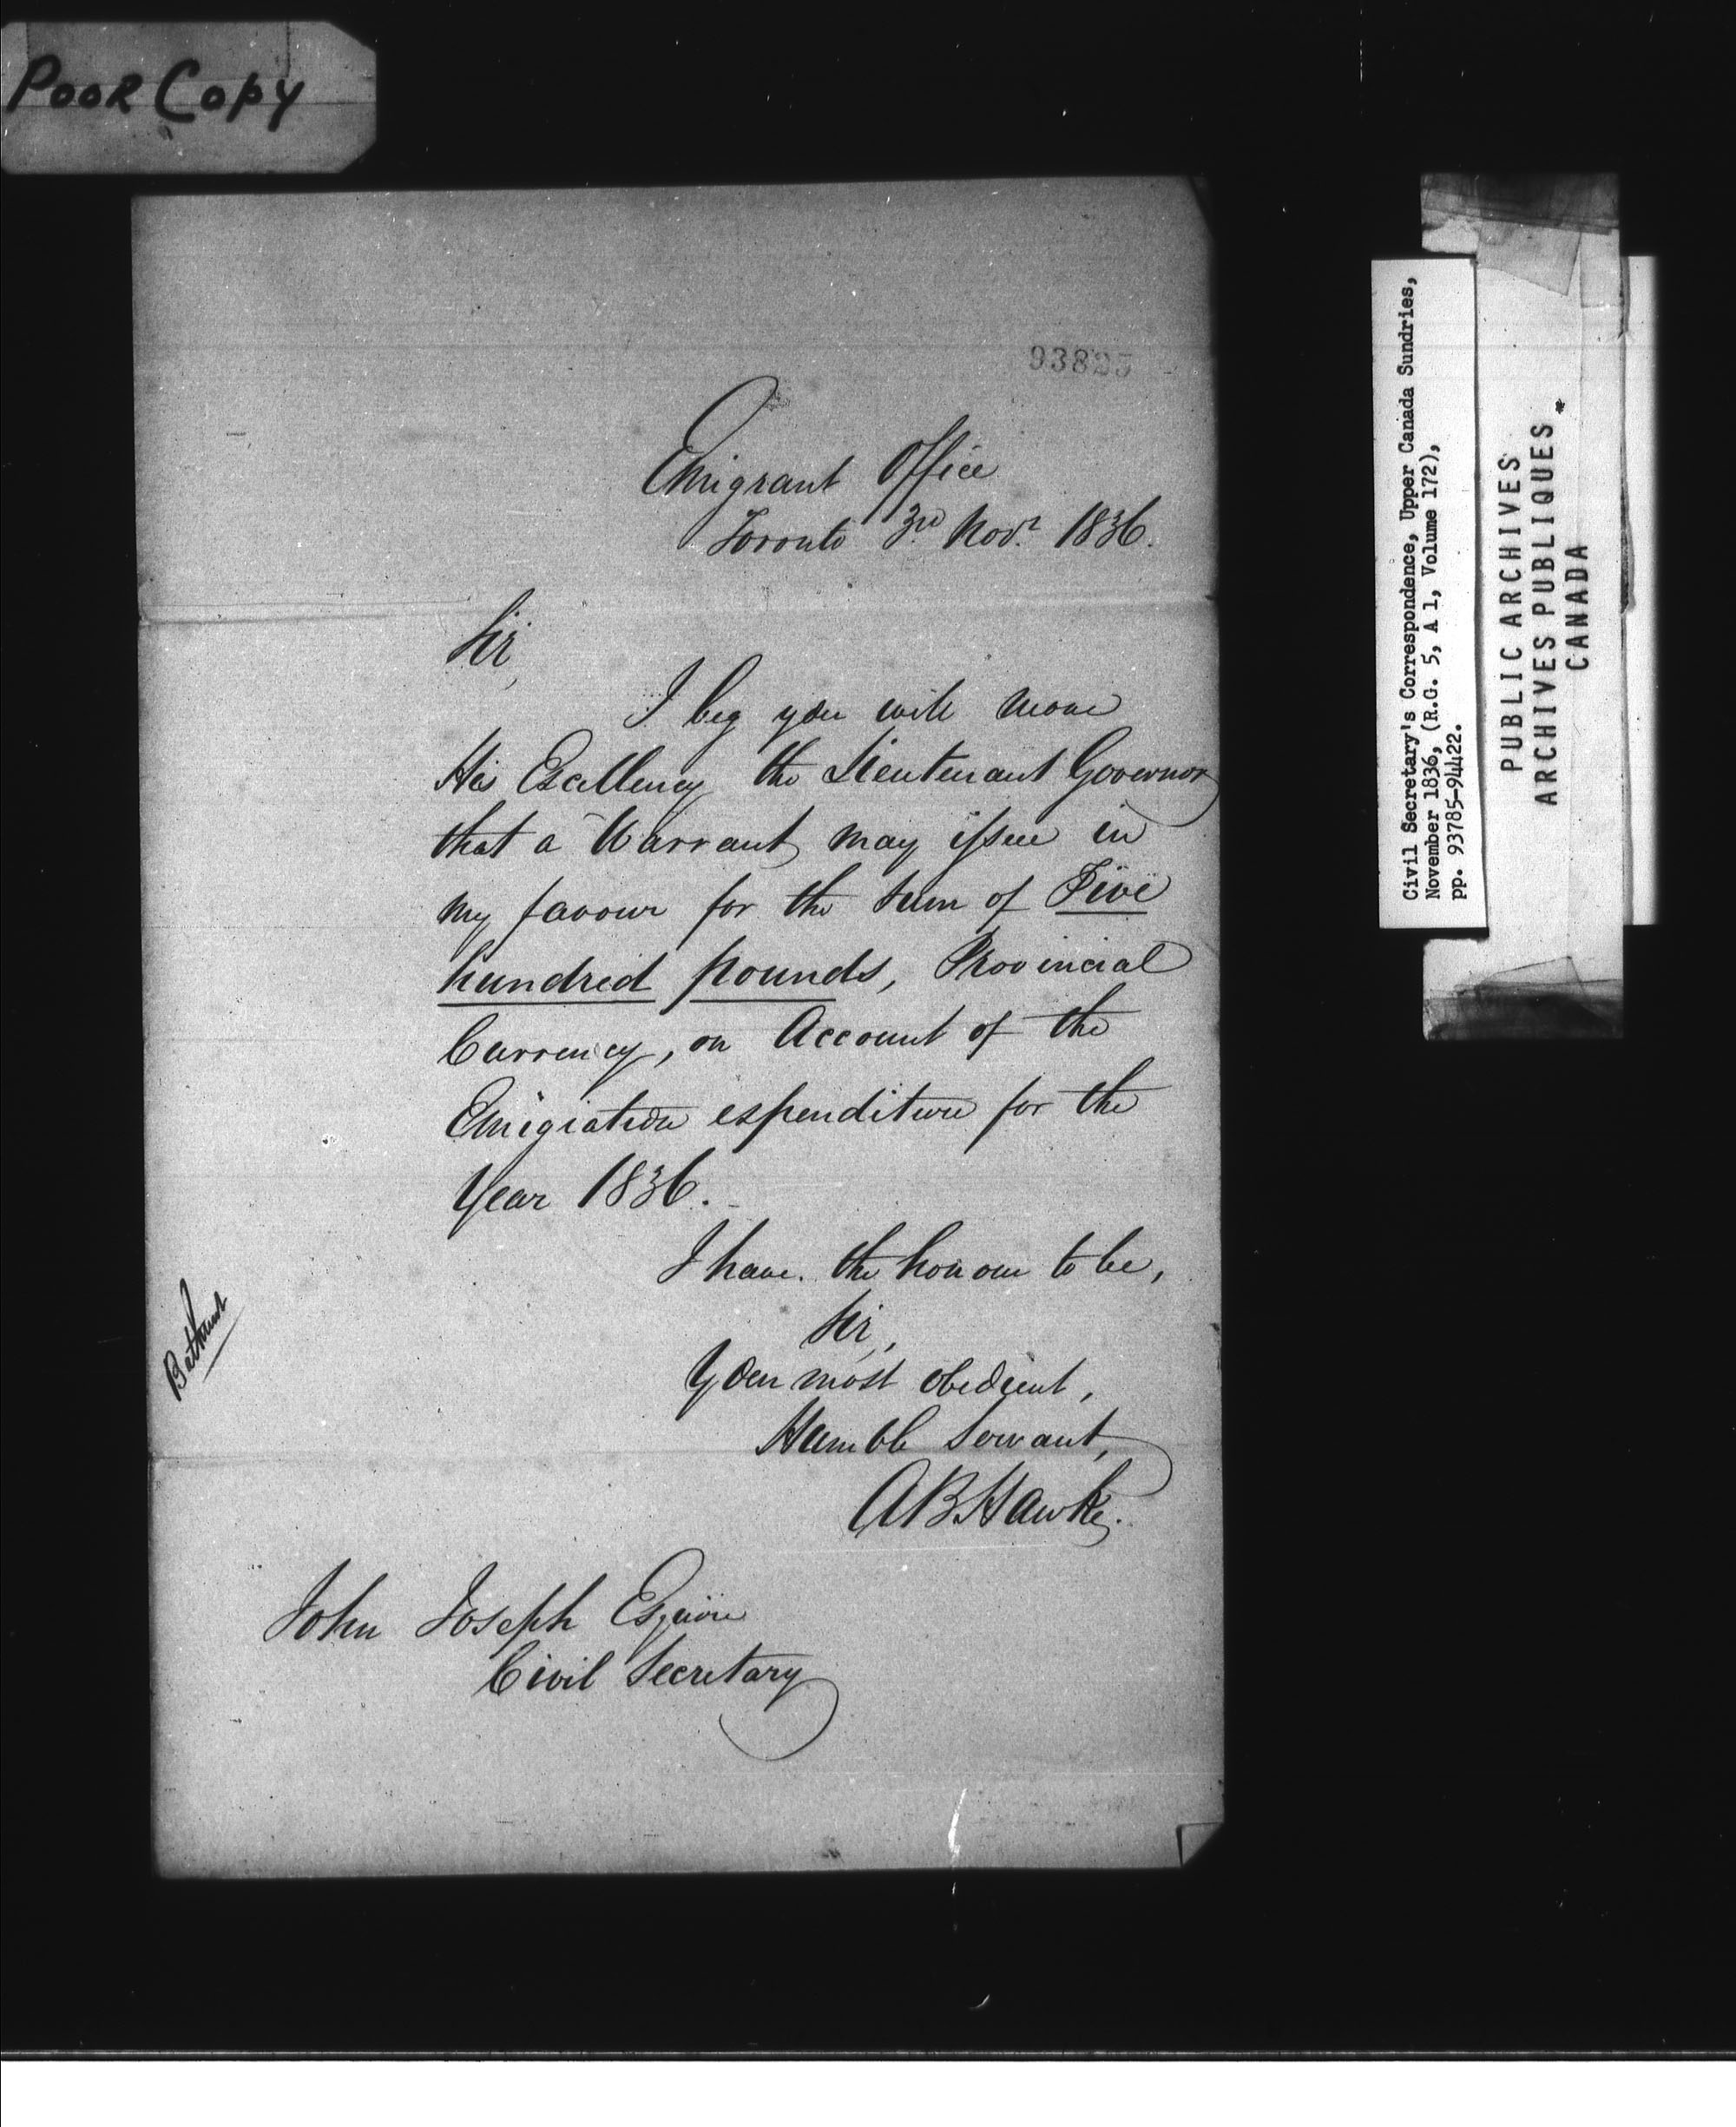 Poor Copy
93825
Emigrant Office
Toronto 3rd Novr 1836.
Sir,
I beg you will move
His Excellency the Lieutenant Governor
that a Warrant may issue in
my favour for the sum of Five
hundred pounds, Provincial
Currency, on Account of the
Emigration expenditure for the
Year 1836.
I have the honour to be,
Sir,
Your most obedient,
Humble Servant,
A B Hawke.
Bathurst
John Joseph Esquire
Civil Secretary
Civil Secretary's Correspondence, Upper Canada Sundries,
November 1836, (R.G. 5, A 1, Volume 172),
pp. 93785-94422.
PUBLIC ARCHIVES
ARCHIVES PUBLIQUES
CANADA